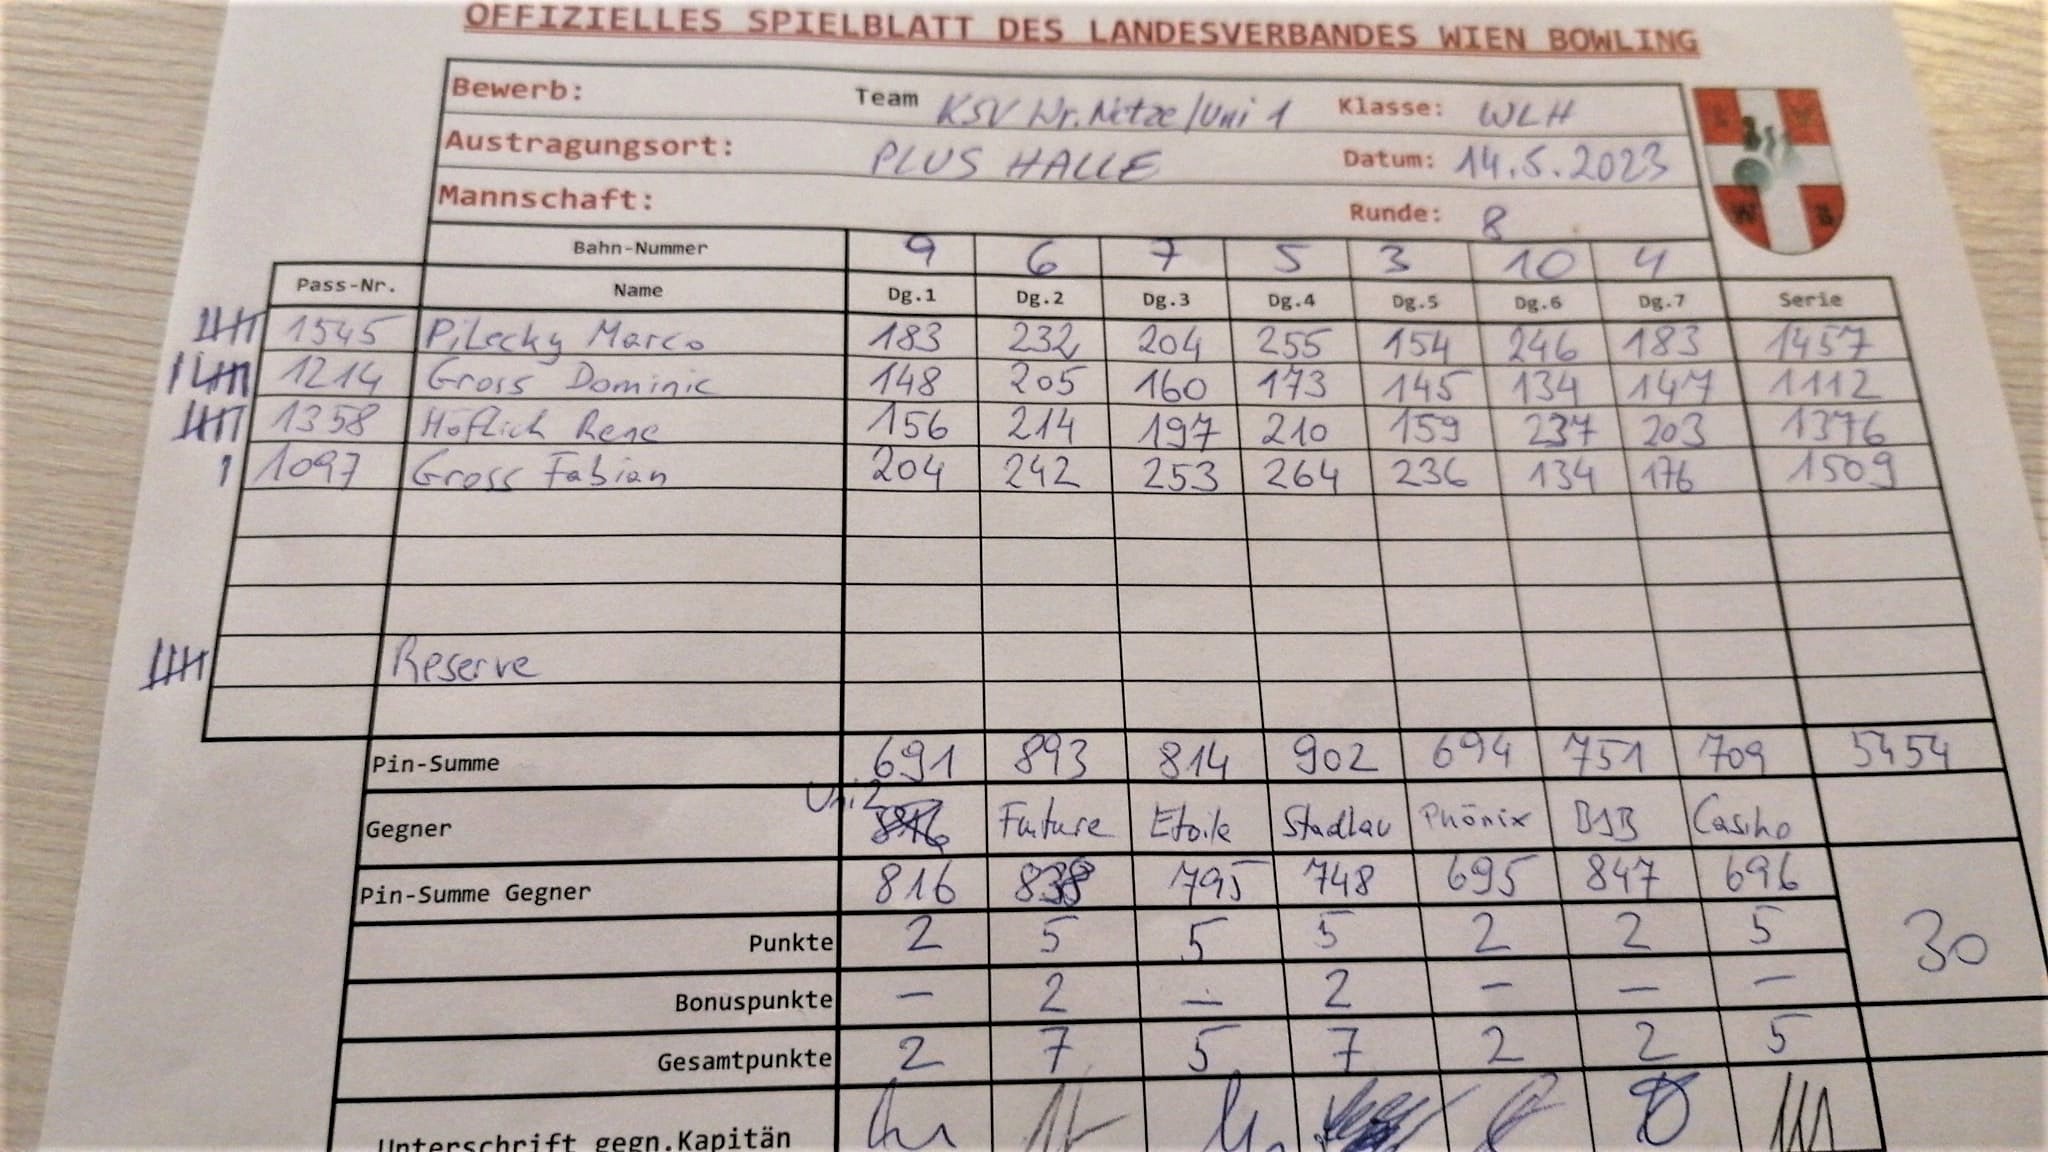 OFFIZIELLES SPIELBLATT DES LANDESVERBANDES WIEN BOWLING
Bewerb: Team KSV Wr. Netze/Uni 1 Klasse: WLH
Austragungsort: PLUS HALLE Datum: 14.5.2023
Mannschaft: Runde: 8
Bahn-Nummer 9 6 7 5 3 10 4
Pass-Nr. Name Dg.1 Dg.2 Dg.3 Dg.4 Dg.5 Dg.6 Dg.7 Serie
1545 Pilecky Marco 183 232 204 255 154 246 183 1457
1214 Gross Dominic 148 205 160 173 145 134 147 1112
1358 Höflich Rene 156 214 197 210 159 237 203 1376
1097 Gross Fabian 204 242 253 264 236 134 176 1509
Reserve
Pin-Summe 691 893 814 902 694 751 709 5454
Gegner Uni2 Future Etoile Stadlau Phönix BSB Casino
Pin-Summe Gegner 816 838 795 748 695 847 696
Punkte 2 5 5 5 2 2 5 30
Bonuspunkte – 2 – 2 – – –
Gesamtpunkte 2 7 5 7 2 2 5
Unterschrift gegn.Kapitän